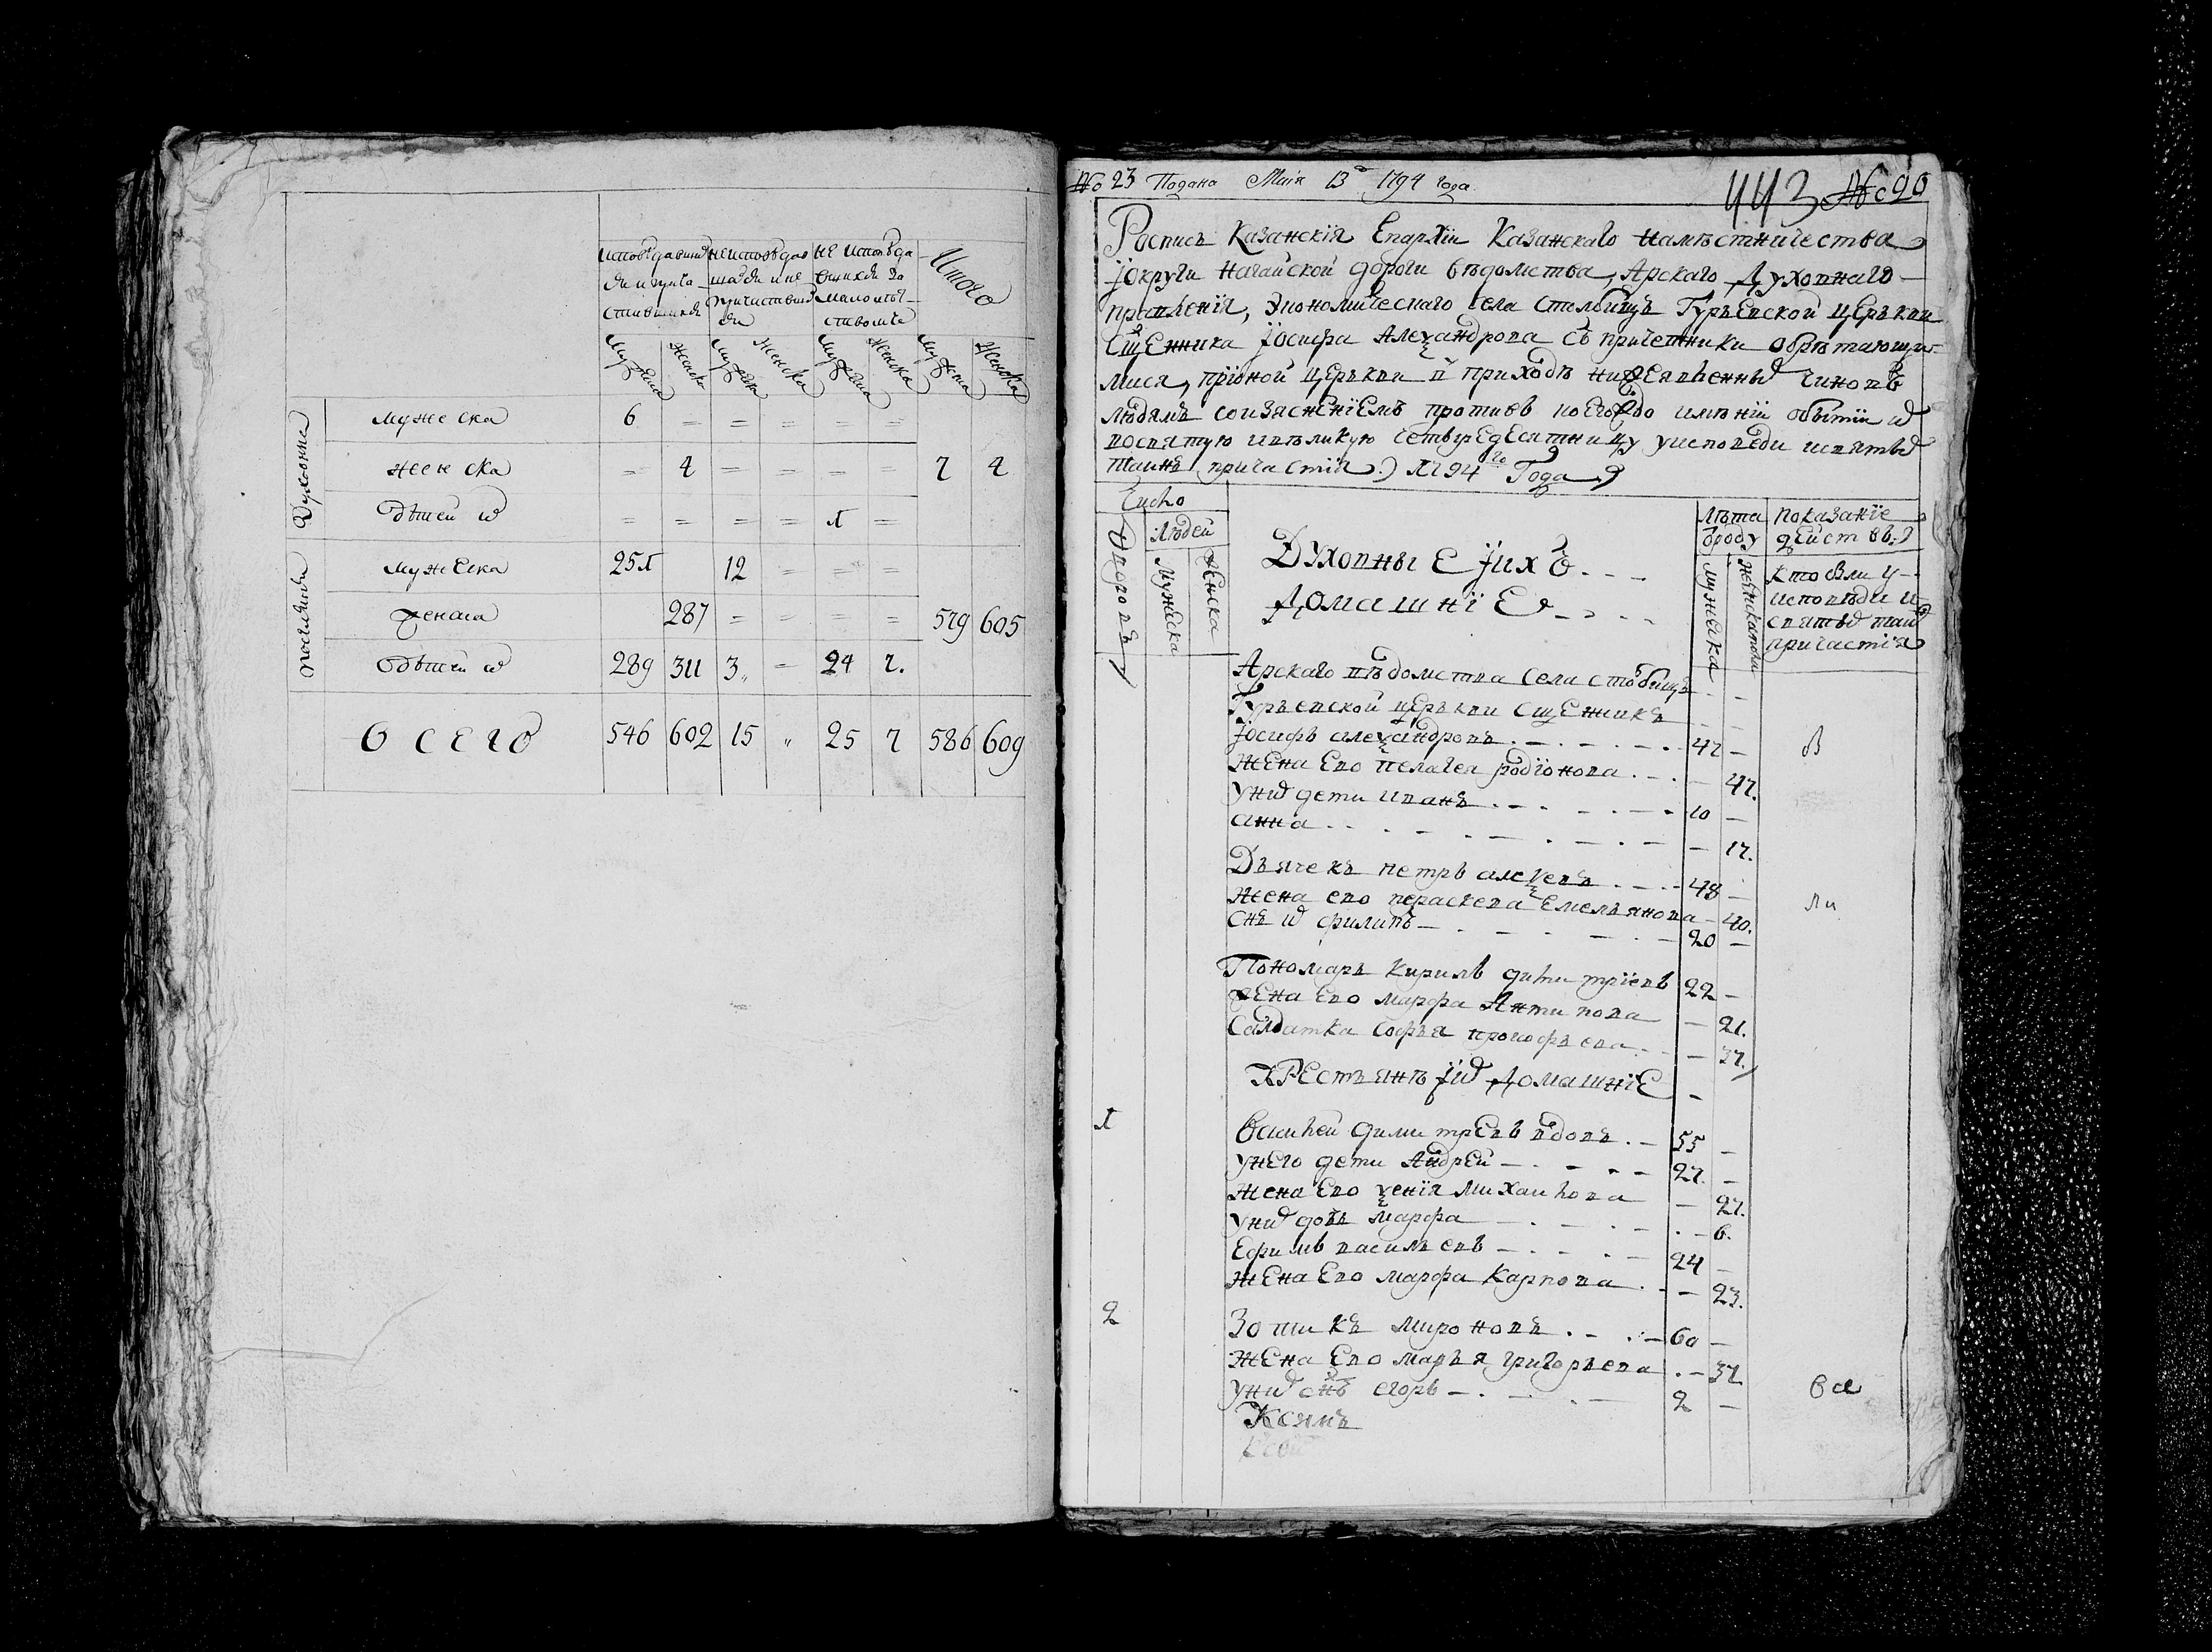 исповѣдавши неисповѣдав не исповѣда
хся и прича шахся и не вшихся за
стившихся причастивши малолѣт
хся ствомъ
Итого
Мужеска Женска Мужеска Женска Мужеска Женска Мужеска Женска
Духовни
мужеска 6 = = = = =
женска = 4 = = = = 7 4
обоихъ = = = = 1 =
поселяни
мужеска 251 12 = = =
женска 287 = = = = 579 605
обоихъ 289 311 3 = 24 7.
Всего 546 602 15 " 25 7 586 609
№ 23 Подана Маія 13 1794 года.
443 № 20
Роспись Казанскія Епархіи Казанскаго намѣстничества
округи Нагайской дороги вѣдомства, Арскаго Духовнаго
правленія, Экономическаго села Столбищъ Гурьевской церькви
Сщенника Іосифа Алеѯандрова съ причетники обрѣтающи-
мися, при оной церькви в приходѣ нижеявленныхъ чиновъ
людямъ соизяснениемъ противъ коегождо имѣнїи о бытіи их
восвятую ивѣликую четыредесятницу уисповеди исвятых
таинъ причастія 1794 го Года
Число
Дворовъ
Людей
Мужеска
Женска
Духовныѣ Їихъ
Домашнїѣ
Лѣта
ѿроду
мужеска
женска
Показанїе
дѣйствъ
кто былъ у
исповѣди и
святыхъ таинъ
причастія
Арскаго вѣдомства Села столбищъ
Гурьевской церькви сщенникъ
Їосифъ алеѯандровъ 47
Жена Ево Пелагея родїонова 47.
У них дети иванъ 10
анна 17.
Дьячекъ петръ алеѯевъ 48
Жена ево параскева Емельянова 40.
снъ их филипъ 20
Пономарь Кирилъ димитріевъ 22
Жена Ево марфа Антипова 21.
Салдатка Софья прокофьева 37.
Крестьянѣ Їих Домашнїе
1
Василей димитревъ вдовъ 55
Унего дети Андрей 27.
Жена Ево ѯенїя михаилова 27.
У них дочь марфа 6.
Ефимъ васильевъ 24
Жена Ево марфа Карпова 23.
2
Зотикъ мироновъ 60
Жена Ево марья григорьева 37
У них снъ егоръ 2
Ксимъ
в
ли
все